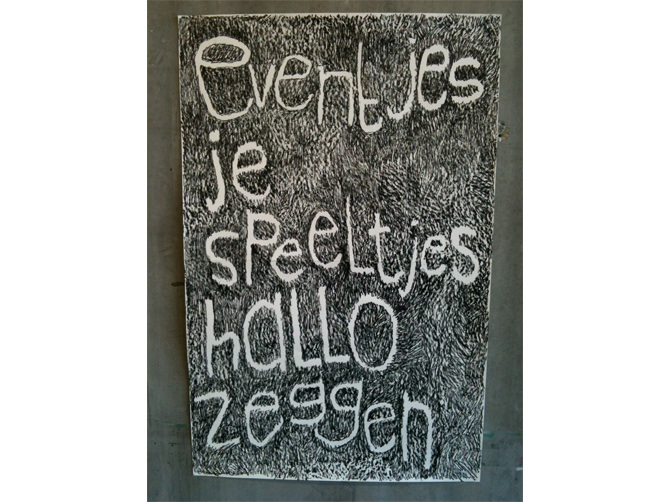 eventjes
je
speeltjes
hallo
zeggen